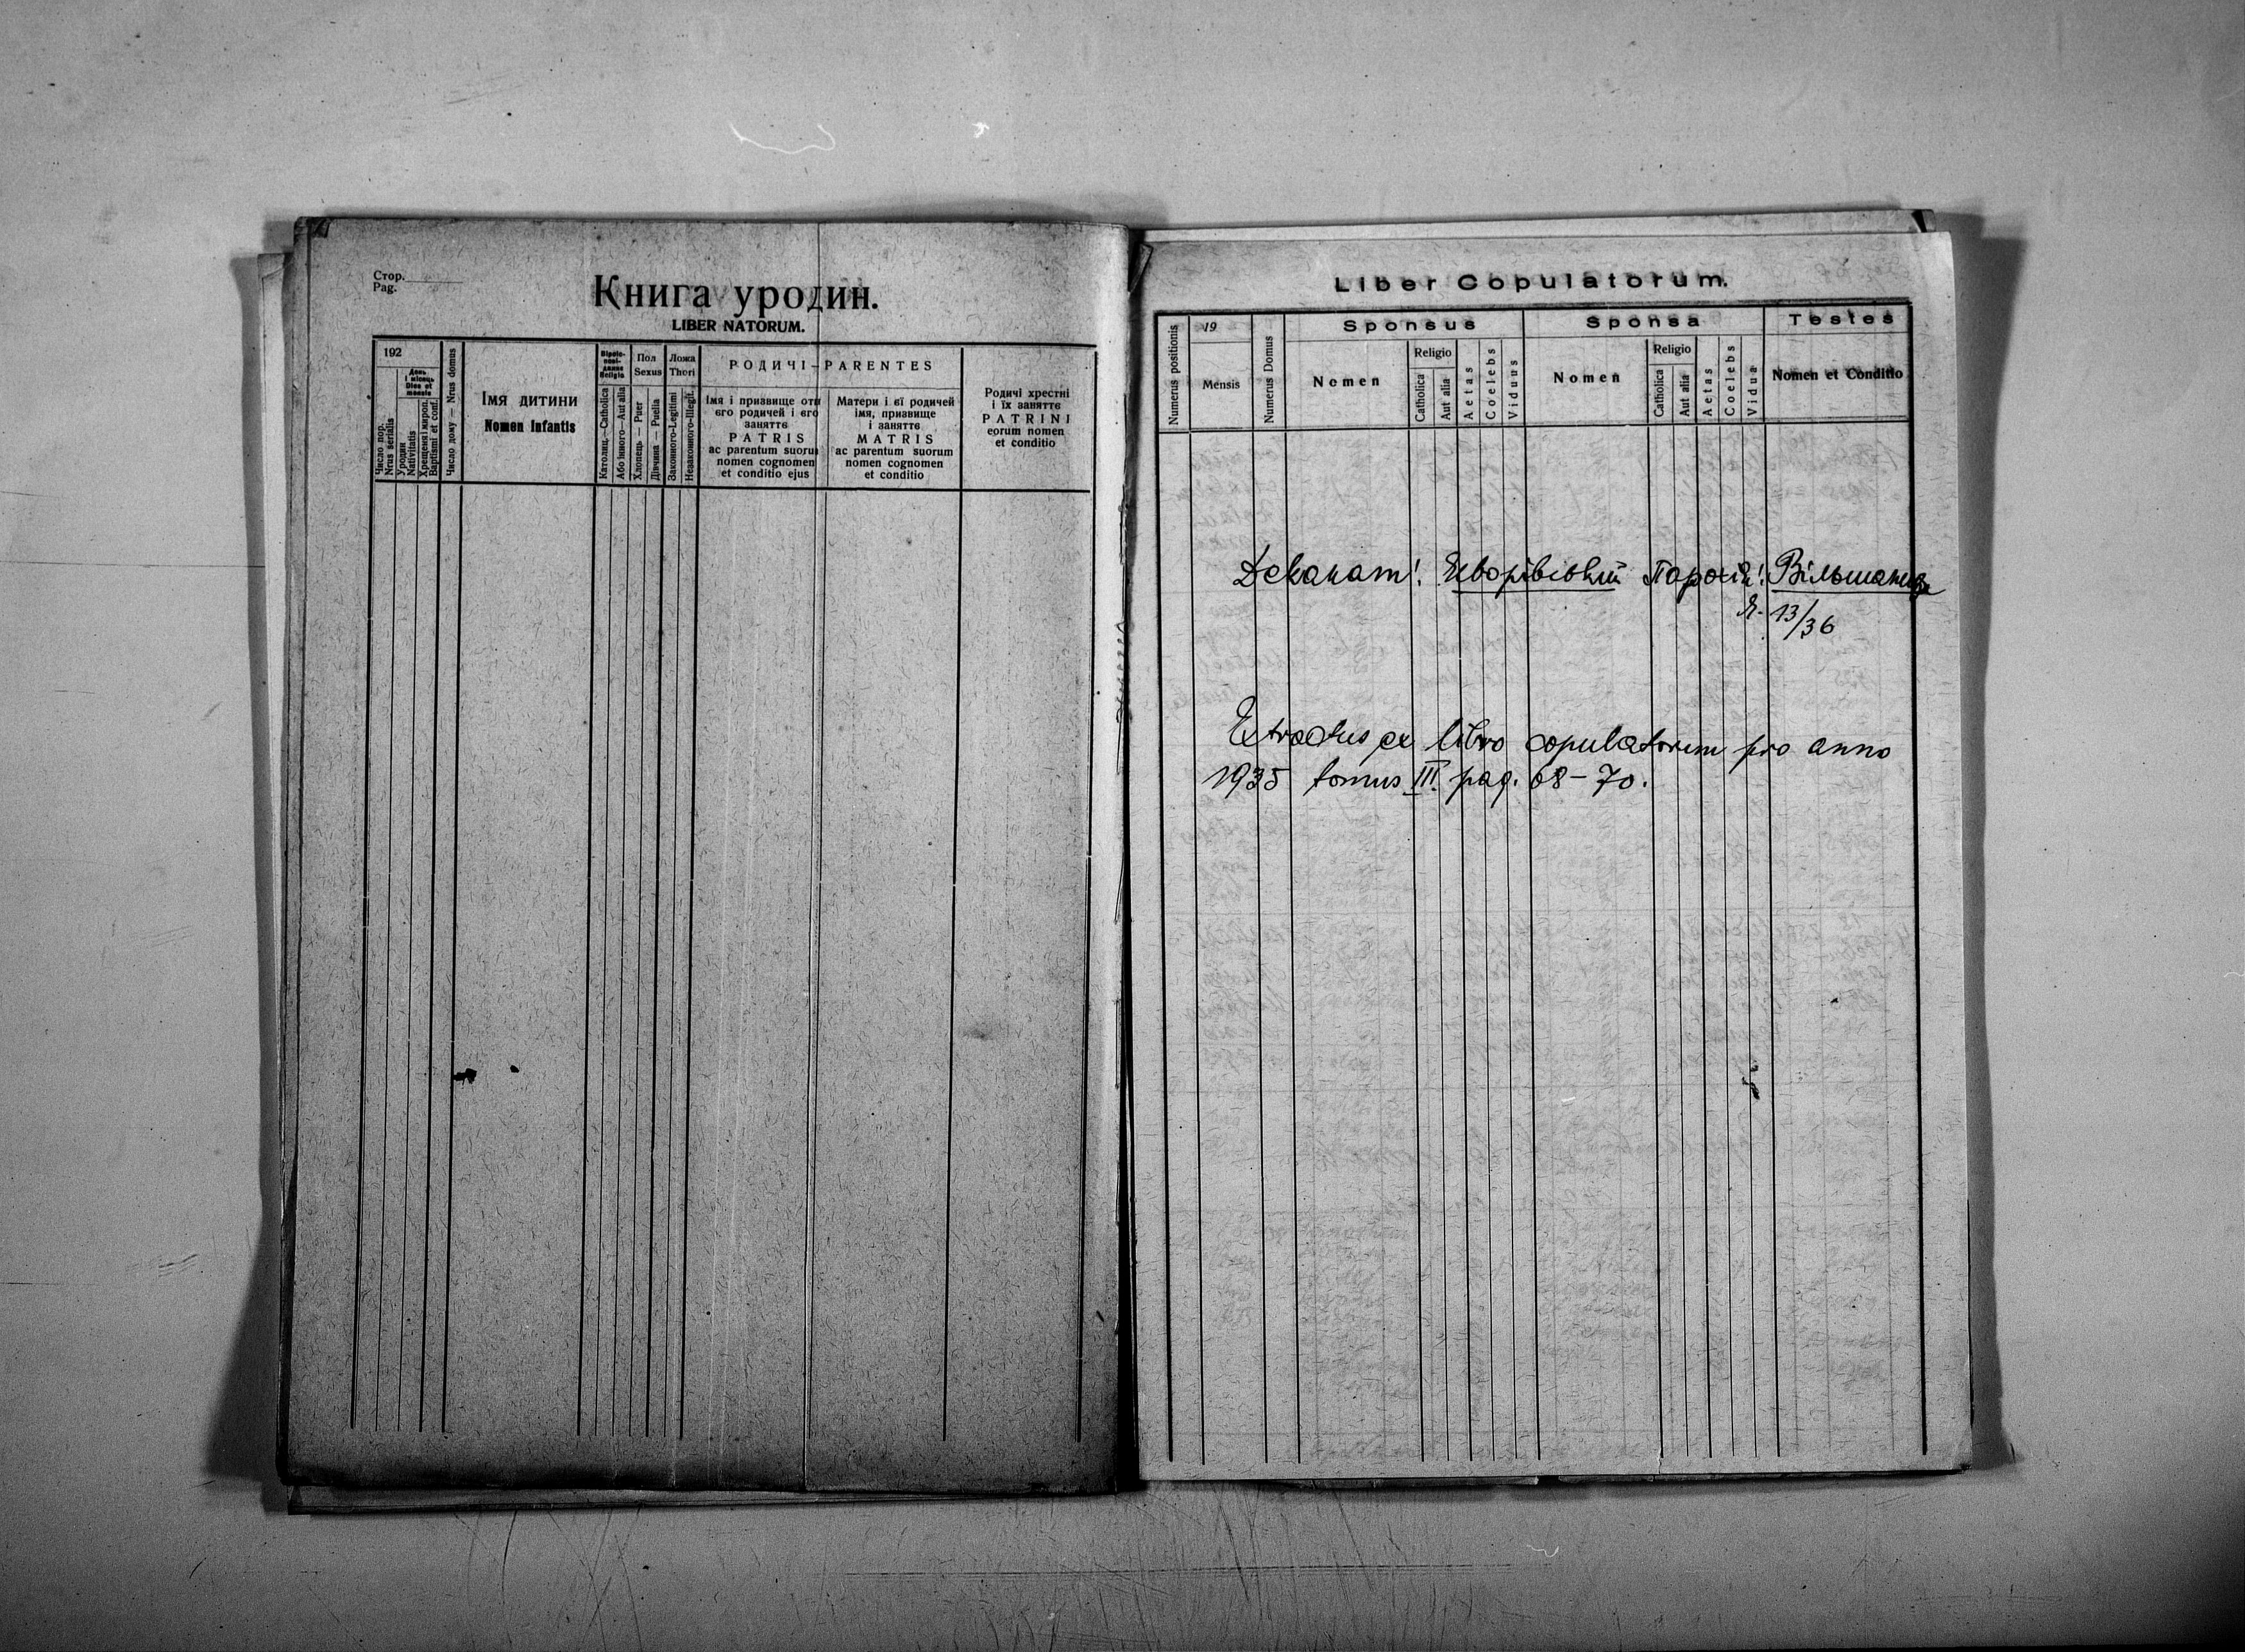 Стор.
Pag.
Книга уродин.
LIBER NATORUM.
192
Число пор.
Nrus serialis
День
і місяць
Dies et
mensis
Уродин
Nativitatis
Хрещеня і миропом.
Baptismi et conf.
Число дому — Nrus domus
Імя дитини
Nomen Infantis
Religio
Католиц.—Catholica
Або інного—Aut alia
Пол
Sexus
Хлопець — Puer
Дівчина — Puella
Ложа
Thori
Законного-Legitimi
Незаконного-Illegit.
РОДИЧІ-PARENTES
Імя і призвище отця
єго родичей і єго
заняттє
PATRIS
ac parentum suorum
nomen cognomen
et conditio ejus
Матери і єї родичей
імя, призвище
і заняттє
MATRIS
ac parentum suorum
nomen cognomen
et conditio
Родичі хрестні
і їх заняттє
PATRINI
eorum nomen
et conditio
Liber Copulatorum.
Numerus positionis
19
Mensis
Numerus Domus
Sponsus
Nomen
Religio
Catholica
Aut alia
Aetas
Coelebs
Viduus
Sponsa
Nomen
Religio
Catholica
Aut alia
Aetas
Coelebs
Vidua
Testes
Nomen et Conditio
Деканат: Яворівський Парохія: Вільшаниця
13/36
Extractus ex libro copulatorum pro anno
1935 tomus III. pag. 68-70.